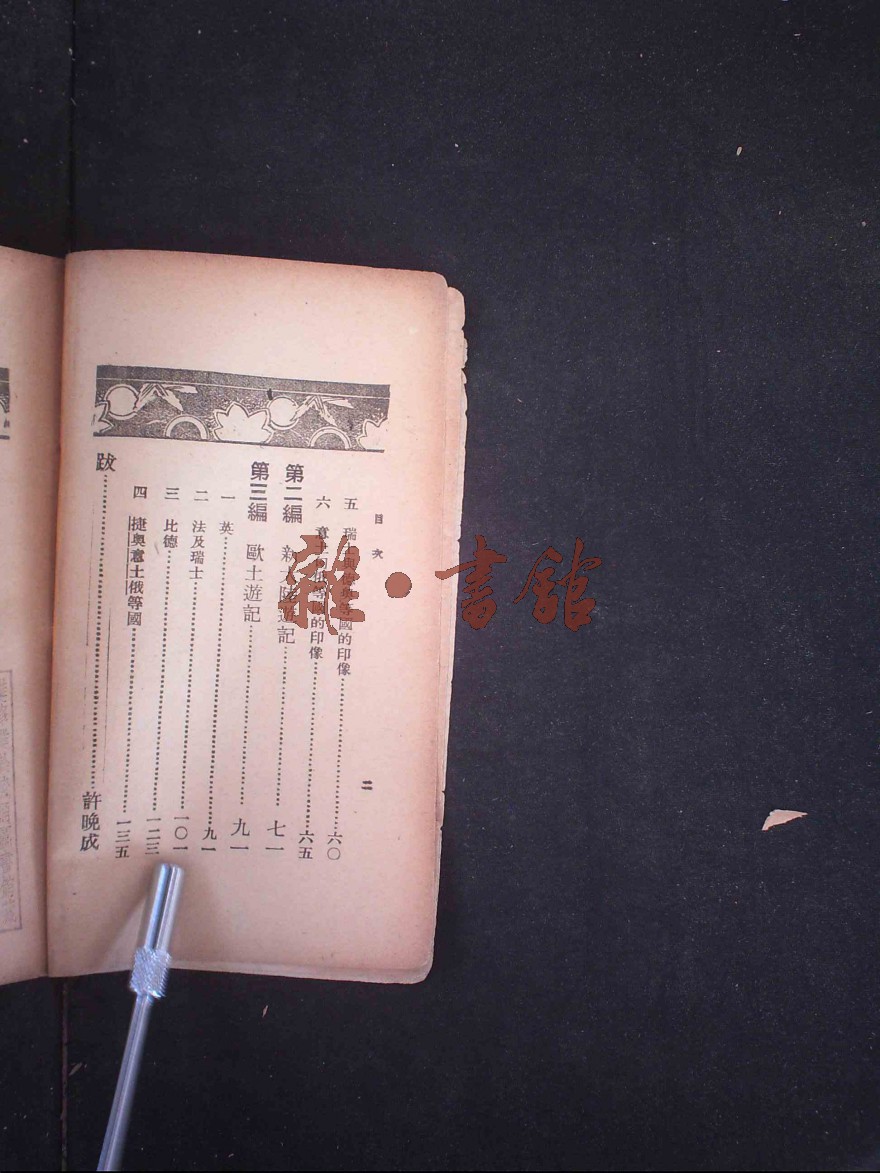 目次
二
五 瑞 等國的印像……六〇
六 意土俄等 的印像……六五
第二編 新大陸遊記……七一
第三編 歐土遊記……九一
一 英……九一
二 法及瑞士……一〇一
三 比德……一二三
四 捷奧意土俄等國……一三五
跋……許晚成
雜·書館